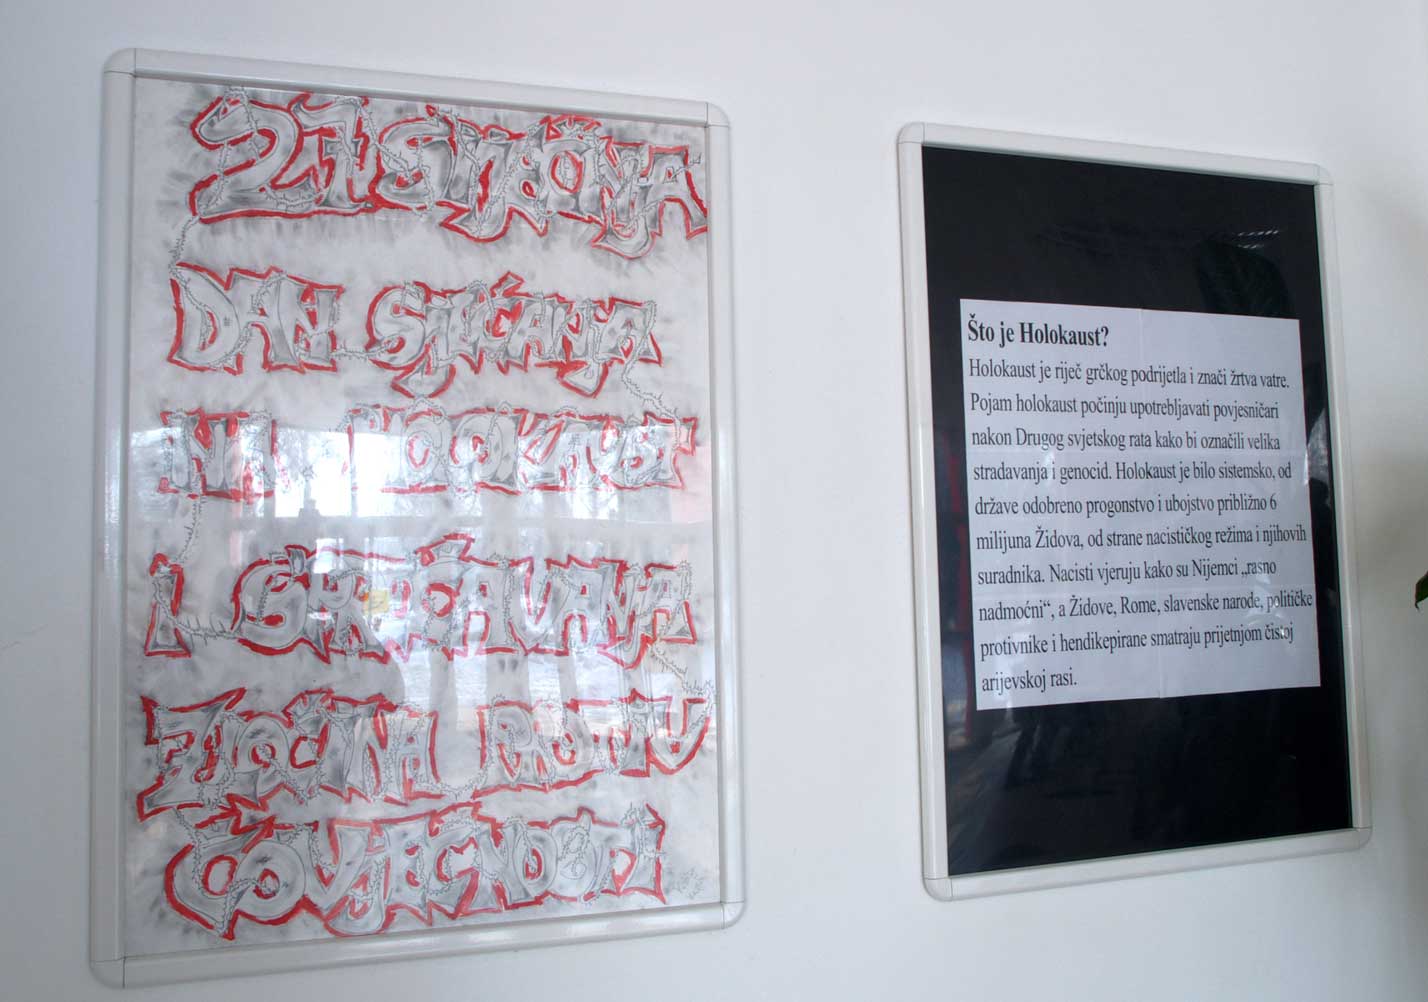 27. SIJEČNJA
DAN SJEĆANJA
NA HOLOKAUST
I SPREČAVANJA
ZLOČINA PROTIV
ČOVJEČNOSTI
Što je Holokaust?
Holokaust je riječ grčkog podrijetla i znači žrtva vatre.
Pojam holokaust počinju upotrebljavati povjesničari
nakon Drugog svjetskog rata kako bi označili velika
stradavanja i genocid. Holokaust je bilo sistemsko, od
države odobreno progonstvo i ubojstvo približno 6
milijuna Židova, od strane nacističkog režima i njihovih
suradnika. Nacisti vjeruju kako su Nijemci „rasno
nadmoćni“, a Židove, Rome, slavenske narode, političke
protivnike i hendikepirane smatraju prijetnjom čistoj
arijevskoj rasi.